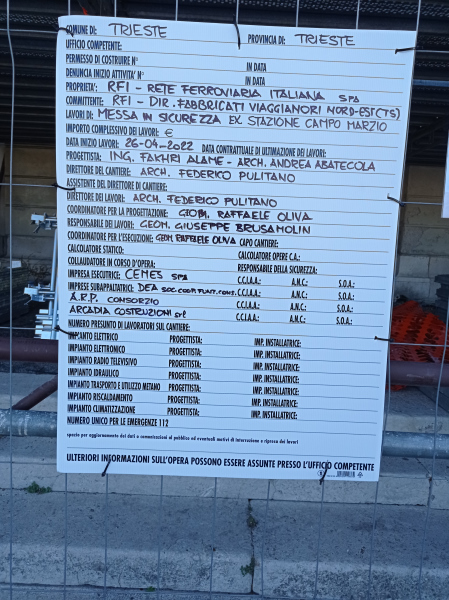 COMUNE DI: TRIESTE PROVINCIA DI: TRIESTE
UFFICIO COMPETENTE:
PERMESSO DI COSTRUIRE N° IN DATA
DENUNCIA INIZIO ATTIVITA' N° IN DATA
PROPRIETA': RFI - RETE FERROVIARIA ITALIANA SPA
COMMITTENTE: RFI - DIR. FABBRICATI VIAGGIATORI NORD-EST (TS)
LAVORI DI: MESSA IN SICUREZZA EX STAZIONE CAMPO MARZIO
IMPORTO COMPLESSIVO DEI LAVORI: €
DATA INIZIO LAVORI: 26-04-2022 DATA CONTRATTUALE DI ULTIMAZIONE DEI LAVORI:
PROGETTISTA: ING. FAKHRI ALAME - ARCH. ANDREA ABATECOLA
DIRETTORE DEL CANTIERE: ARCH. FEDERICO PULITANO
ASSISTENTE DEL DIRETTORE DI CANTIERE:
DIRETTORE DEI LAVORI: ARCH. FEDERICO PULITANO
COORDINATORE PER LA PROGETTAZIONE: GEOM. RAFFAELE OLIVA
RESPONSABILE DEI LAVORI: GEOM. GIUSEPPE BRUSAMOLIN
COORDINATORE PER L'ESECUZIONE: GEOM. RAFFAELE OLIVA CAPO CANTIERE:
CALCOLATORE STATICO: CALCOLATORE OPERE C.A.:
COLLAUDATORE IN CORSO D'OPERA: RESPONSABILE DELLA SICUREZZA:
IMPRESA ESECUTRICE: CEMES SPA C.C.I.A.A.: A.N.C.: S.O.A.:
IMPRESE SUBAPPALTATRICI: DEA SOC. COOP. C.C.I.A.A.: A.N.C.: S.O.A.:
A.R.P. CONSORZIO C.C.I.A.A.: A.N.C.: S.O.A.:
ARCADIA COSTRUZIONI srl C.C.I.A.A.: A.N.C.: S.O.A.:
NUMERO PRESUNTO DI LAVORATORI SUL CANTIERE:
IMPIANTO ELETTRICO PROGETTISTA: IMP. INSTALLATRICE:
IMPIANTO ELETTRONICO PROGETTISTA: IMP. INSTALLATRICE:
IMPIANTO RADIO TELEVISIVO PROGETTISTA: IMP. INSTALLATRICE:
IMPIANTO IDRAULICO PROGETTISTA: IMP. INSTALLATRICE:
IMPIANTO TRASPORTO E UTILIZZO METANO PROGETTISTA: IMP. INSTALLATRICE:
IMPIANTO RISCALDAMENTO PROGETTISTA: IMP. INSTALLATRICE:
IMPIANTO CLIMATIZZAZIONE PROGETTISTA: IMP. INSTALLATRICE:
NUMERO UNICO PER LE EMERGENZE 112
spazio per aggiornamento dei dati o comunicazioni al pubblico ed eventuali motivi di interruzione e ripresa dei lavori
ULTERIORI INFORMAZIONI SULL'OPERA POSSONO ESSERE ASSUNTE PRESSO L'UFFICIO COMPETENTE